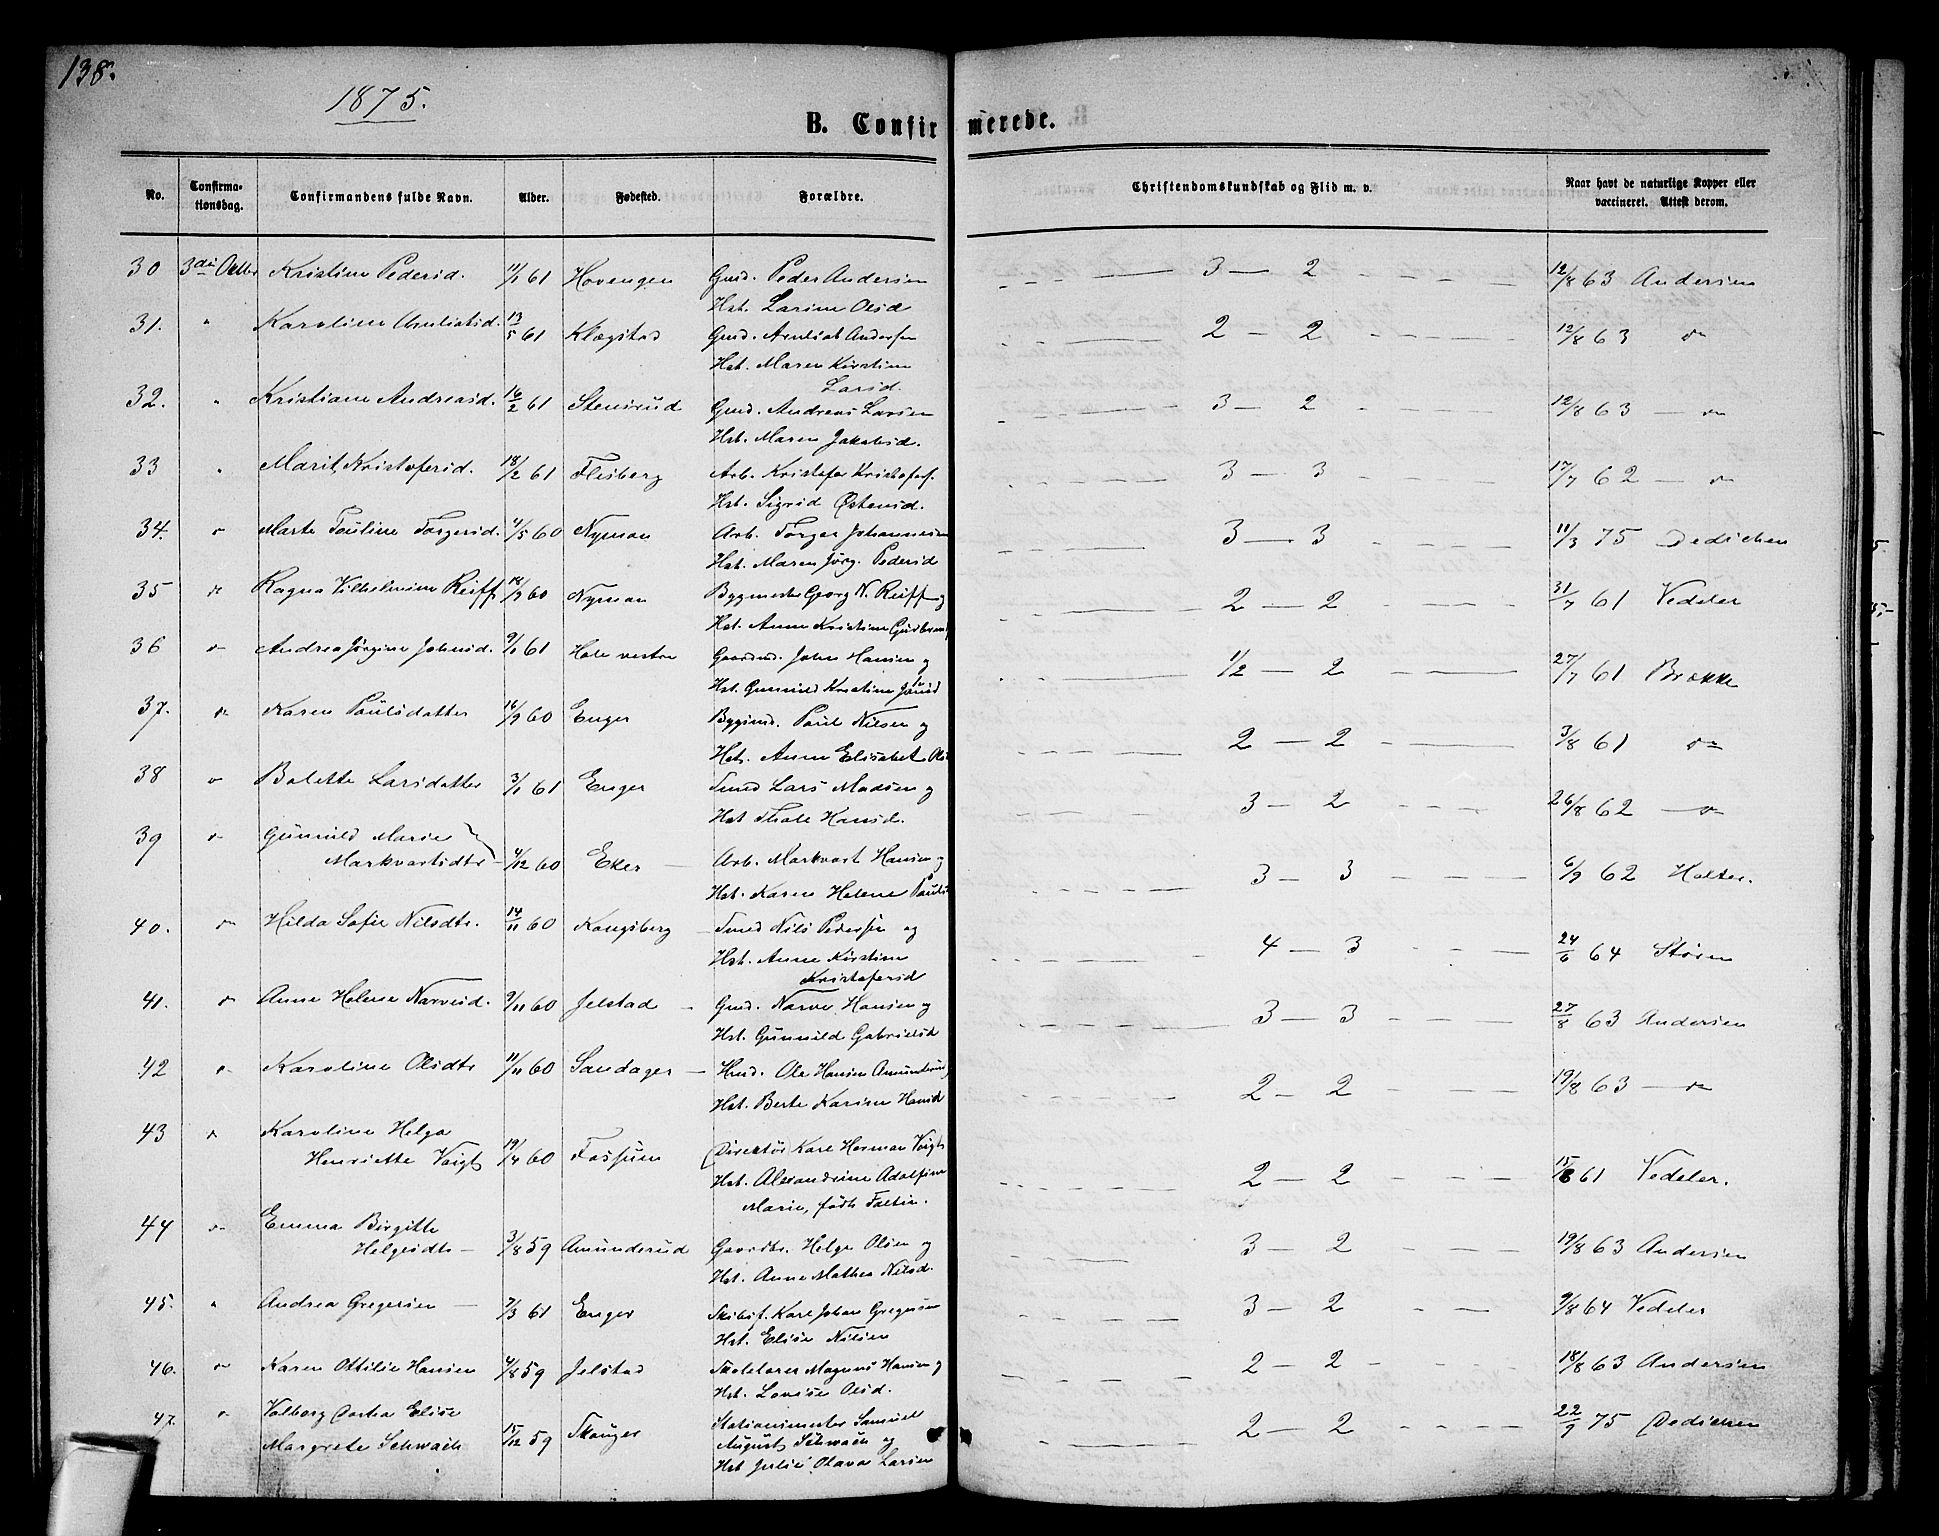 138.
1875.
B. Confirmerede.
No. Confirmationsdag. Confirmandens fulde Navn. Alder. Fødested. Forældre. Christendomskundskab og Flid m. v. Naar havt de naturlige Kopper eller vaccineret. Attest derom.
30 3die Octbr Kristine Pedersd. 11/1 61 Hovengen Gmd. Peder Andersen 3 — 2 12/8 63 Andersen
Hst. Larine Olsd
31. " Karoline 13/5 61 Klægstad Gmd. Andersen 2 — 2 12/8 63 do
Hst. Maren Kirstine
Larsd.
32. " Kristiane Andreasd. 16/2 61 Stensrud Gmd. Andreas Larsen 3 — 2 12/8 63 — do
Hst. Maren Jakobsd.
33 " Marit Kristofersd. 18/2 61 Flesberg Arb. Kristofer Kristofers. 3 — 3 17/7 62 — do
Hst. Sigrid Østensd.
34. do Marte Pauline Torgersd. 4/5 60 Nymoen Arb. Torger Johannesen 3 — 3 11/3 75 Dedichen
Hst. Maren Jørg. Pedersd
35 do Ragna Vilhelmine Reiff 18/9 60 Nymoen Bygmester Georg N. Reiff og 2 — 2 31/7 61 Vedeler
Hst. Anne Kristine
36 do Andrea Jørgine Johnsd. 9/1 61 Hole vestre Gaardmd. John Hansen og 1/2 — 2 27/7 61 Brække
Hst. Gunnild Kristine
37. do Karen Paulsdatter 16/9 60 Enger Bygmd. Paul Nilsen og 2 — 2 3/8 61 do
Hst. Anne Elisabet Ols
38 do Bolette Larsdatter 3/1 61 Enger Smed Lars Madsen og 3 — 2 26/8 62 — do
Hst Thale Hansd.
39 do Gunnild Marie
Markvartsdtr 4/12 60 Eker Arb. Markvart Hansen og 3 — 3 6/9 62 Holter.
Hst. Karen Helene Pauls
40. do Hilda Sofie Nilsdtr. 14/11 60 Kongsberg Smed Nils Pedersen og 4 — 3 24/6 64 Støren
Hst. Anne Kirstine
Kristofersd
41. do Anne Helene Narvesd. 9/11 60 Jelstad Gmd. Narve Hansen og 3 — 3 27/8 63 Andersen
Hst. Gunnild Gabrielsd
42 do Karoline Olsdtr 11/11 60 Sandager Hmd. Ole Hansen Amundrud 2 — 2 19/8 63 — do
Hst. Berte Karine Hansd
43 do Karoline Helga
Henriette Voigt 19/4 60 Fossum Direktør Karl Herman Voigt 2 — 2 15/8 61 Vedeler.
Hst. Alexandrine Adolfine
Marie, født Faltin.
44 do Emma Birgitte
Helgesdtr 3/8 59 Amunderud Gaardbr. Helge Olsen og 3 — 2 19/8 63 Andersen
Hst. Anne Mathea Nilsd.
45. " Andrea Gregersen 7/3 61 Enger Skibsf. Karl Johan Gregersen 3 — 2 9/8 64 Vedeler
Hst. Elise Nilsen
46. do Karen Ottilie Hansen 4/8 59 Jelstad Skolelærer Magnus Hansen og 2 — 2 18/8 63 Andersen
Hst. Lovise Olsd.
47. do Valborg Elise
Margrete Schwach 15/12 59 Skouger Stationsmester Samuel 2 — 2 22/9 75 Dedichen
August Schwach og
Hst Julie Olava Larsen